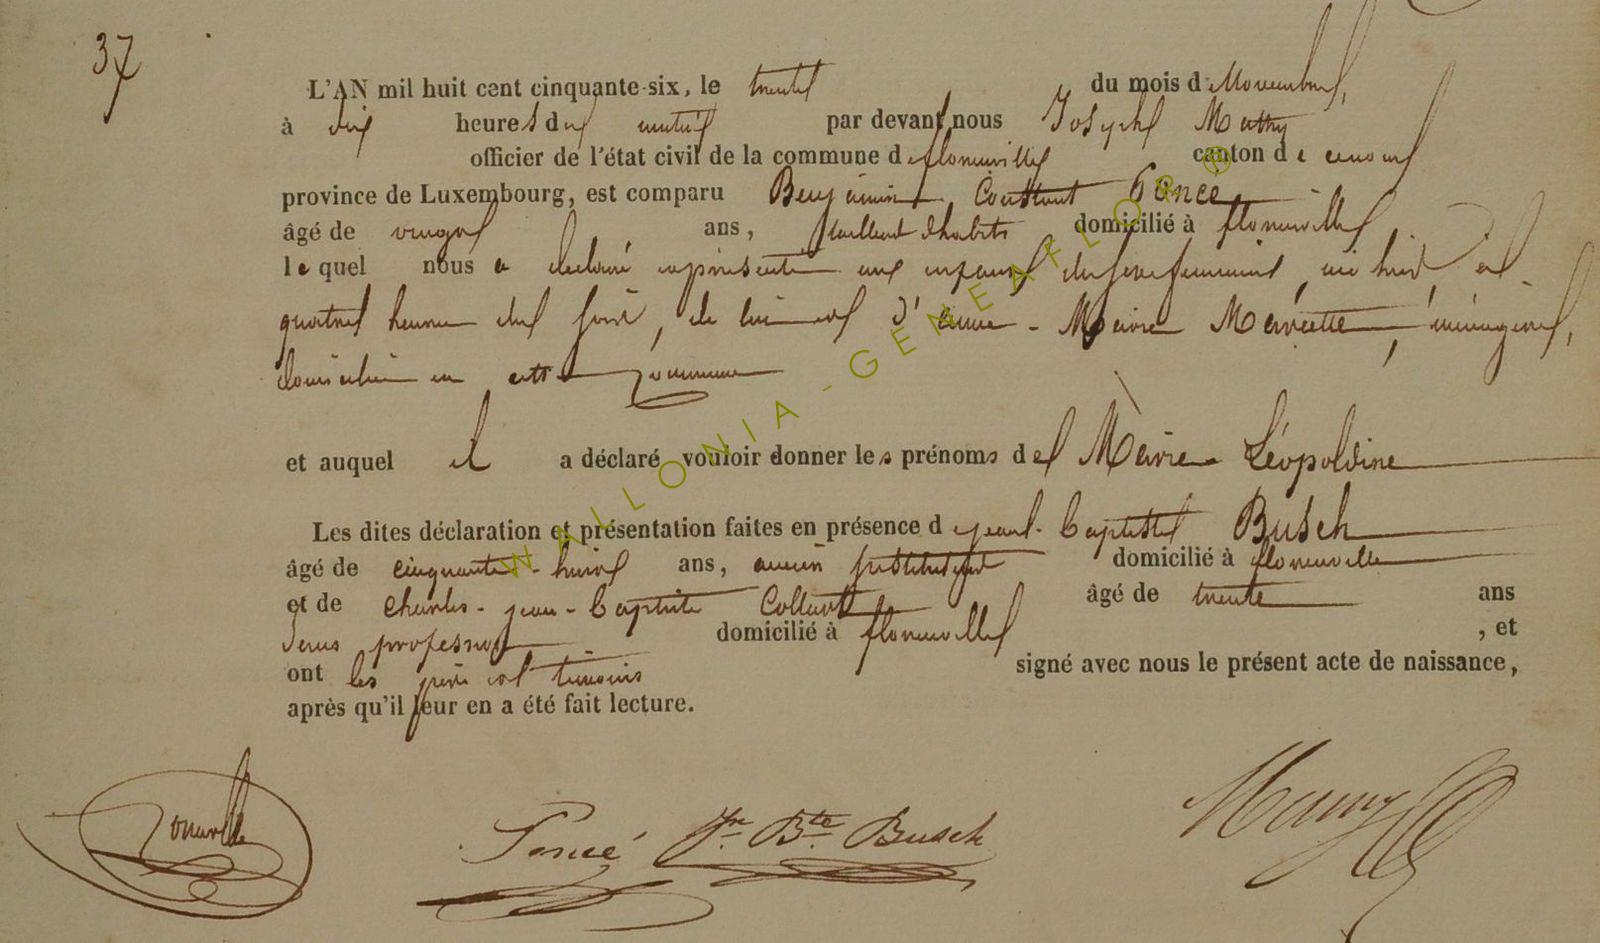 37
L'AN mil huit cent cinquante-six, le trente du mois de Novembre,
à dix heures du matin par devant nous Joseph Mathy
officier de l'état civil de la commune de florenville canton de
province de Luxembourg, est comparu Benjamin Constant Poncé
âgé de vingt ans, tailleur d'habits domicilié à florenville
lequel nous a déclaré et présenté un enfant du sexe feminin, né hier à
quatre heures du soir, de lui et d' Marie Marcette, ménagère,
domiciliée en cette commune
et auquel il a déclaré vouloir donner les prénoms de Marie Léopoldine
Les dites déclaration et présentation faites en présence de jean-Baptiste Busch
âgé de cinquante-huit ans, ancien instituteur domicilié à florenville
et de Charles-jean-Baptiste âgé de trente ans
professeur domicilié à florenville , et
ont les père et témoins signé avec nous le présent acte de naissance,
après qu'il leur en a été fait lecture.
Poncé Jn Bte Busch
WALLONIA-GENEAFLOR